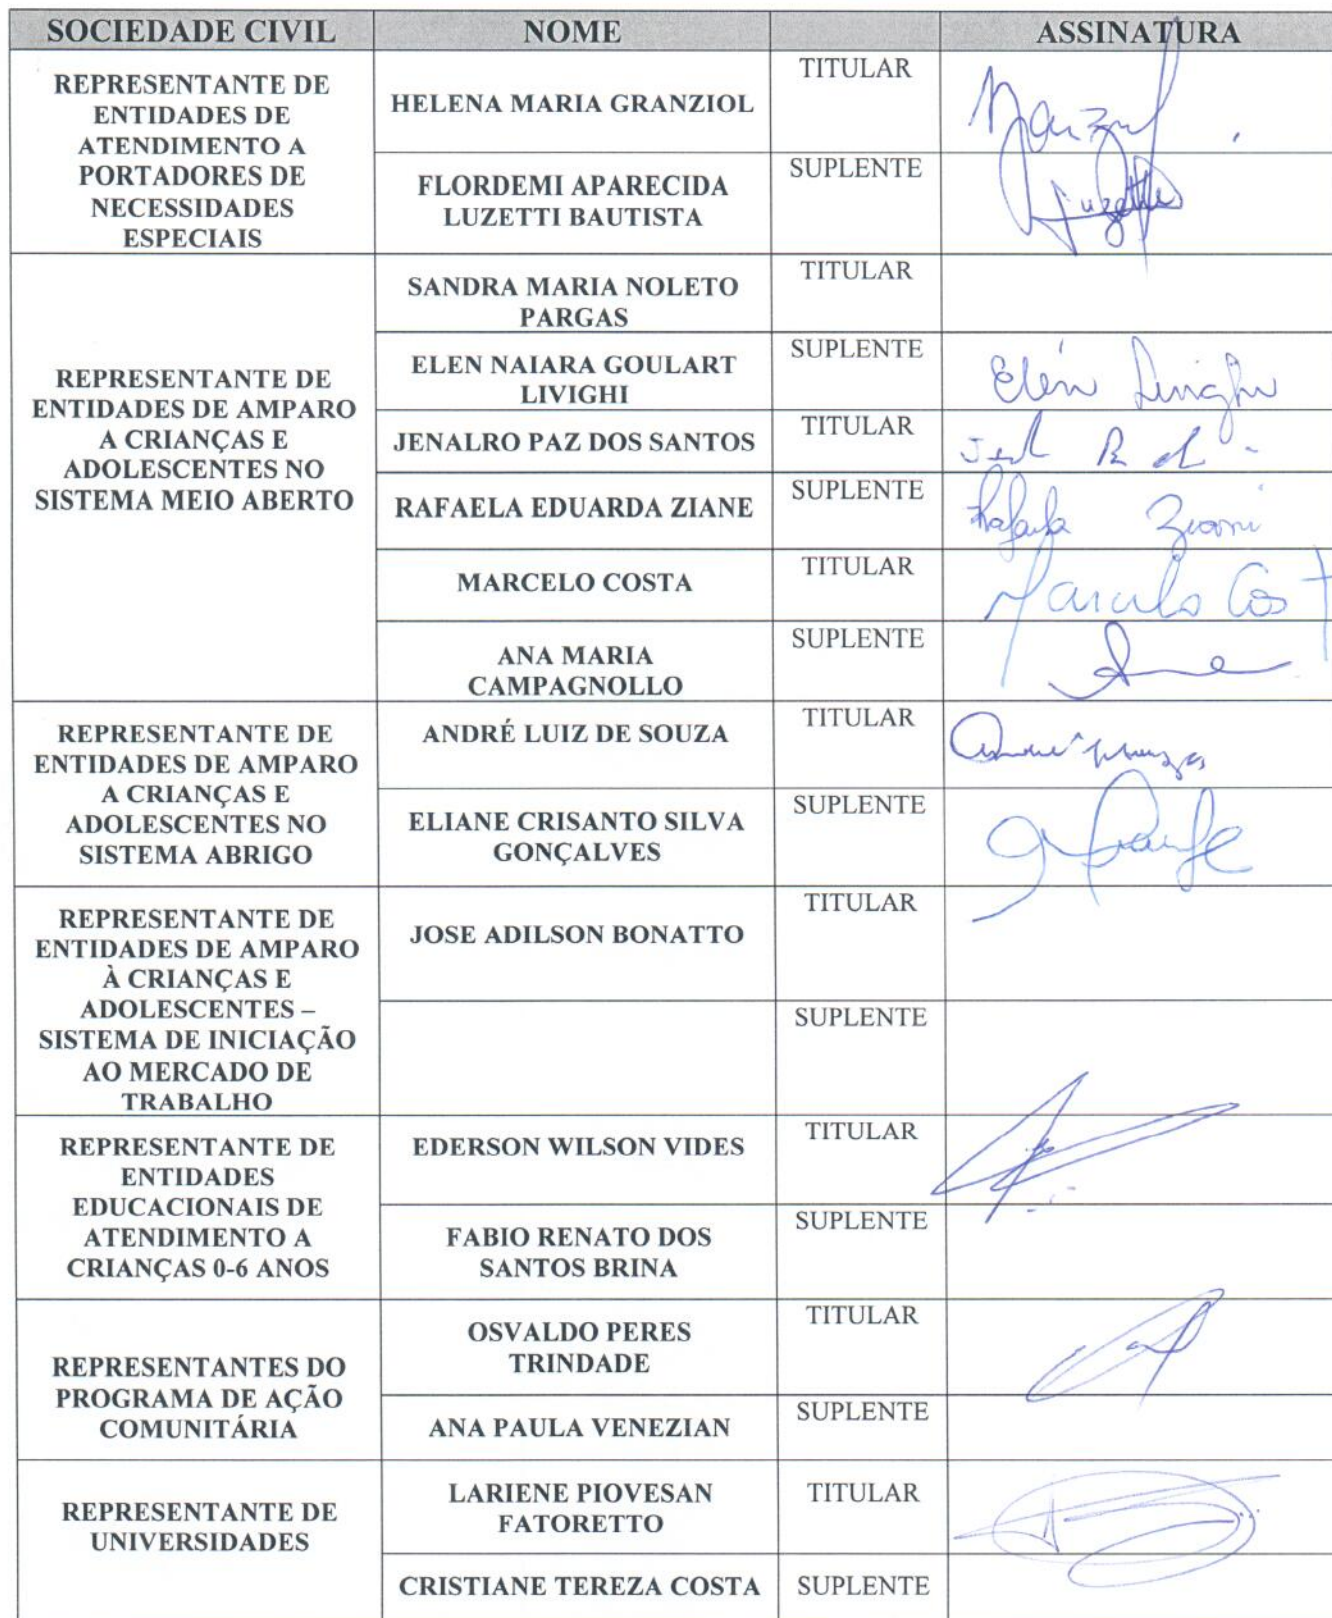 SOCIEDADE CIVIL NOME ASSINATURA
REPRESENTANTE DE
ENTIDADES DE
ATENDIMENTO A
PORTADORES DE
NECESSIDADES
ESPECIAIS
HELENA MARIA GRANZIOL
TITULAR
FLORDEMI APARECIDA
LUZETTI BAUTISTA
SUPLENTE
REPRESENTANTE DE
ENTIDADES DE AMPARO
A CRIANÇAS E
ADOLESCENTES NO
SISTEMA MEIO ABERTO
SANDRA MARIA NOLETO
PARGAS
TITULAR
ELEN NAIARA GOULART
LIVIGHI
SUPLENTE
Elen Livighi
JENALRO PAZ DOS SANTOS
TITULAR
RAFAELA EDUARDA ZIANE
SUPLENTE
Rafaela Ziani
MARCELO COSTA
TITULAR
Marcelo Cost
ANA MARIA
CAMPAGNOLLO
SUPLENTE
REPRESENTANTE DE
ENTIDADES DE AMPARO
A CRIANÇAS E
ADOLESCENTES NO
SISTEMA ABRIGO
ANDRÉ LUIZ DE SOUZA
TITULAR
ELIANE CRISANTO SILVA
GONÇALVES
SUPLENTE
REPRESENTANTE DE
ENTIDADES DE AMPARO
À CRIANÇAS E
ADOLESCENTES –
SISTEMA DE INICIAÇÃO
AO MERCADO DE
TRABALHO
JOSE ADILSON BONATTO
TITULAR
SUPLENTE
REPRESENTANTE DE
ENTIDADES
EDUCACIONAIS DE
ATENDIMENTO A
CRIANÇAS 0-6 ANOS
EDERSON WILSON VIDES
TITULAR
FABIO RENATO DOS
SANTOS BRINA
SUPLENTE
REPRESENTANTES DO
PROGRAMA DE AÇÃO
COMUNITÁRIA
OSVALDO PERES
TRINDADE
TITULAR
ANA PAULA VENEZIAN
SUPLENTE
REPRESENTANTE DE
UNIVERSIDADES
LARIENE PIOVESAN
FATORETTO
TITULAR
CRISTIANE TEREZA COSTA
SUPLENTE